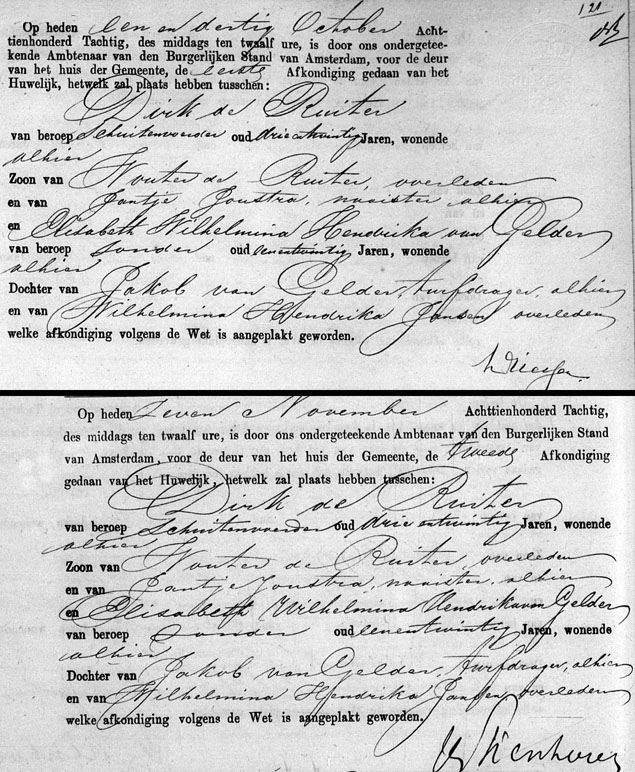 121
Op heden een en dertig October Acht-
tienhonderd Tachtig, des middags ten twaalf ure, is door ons ondergetee-
kende Ambtenaar van den Burgerlijken Stand van Amsterdam, voor de deur
van het huis der Gemeente, de eerste Afkondiging gedaan van het
Huwelijk, hetwelk zal plaats hebben tusschen:
Dirk de Ruiter
van beroep Schuitenvoerder oud drieentwintig Jaren, wonende
alhier
Zoon van Wouter de Ruiter, overleden
en van Jantje Joustra, naaister alhier
en Elisabeth Wilhelmina Hendrika van Gelder
van beroep zonder oud eenentwintig Jaren, wonende
alhier
Dochter van Jakob van Gelder, turfdrager, alhier
en van Wilhelmina Hendrika Jansen overleden
welke afkondiging volgens de Wet is aangeplakt geworden.
Op heden Zeven November Achttienhonderd Tachtig,
des middags ten twaalf ure, is door ons ondergeteekende Ambtenaar van den Burgerlijken Stand
van Amsterdam, voor de deur van het huis der Gemeente, de tweede Afkondiging
gedaan van het Huwelijk, hetwelk zal plaats hebben tusschen:
Dirk de Ruiter
van beroep Schuitenvoerder oud drie entwintig Jaren, wonende
alhier
Zoon van Wouter de Ruiter, overleden
en van Jantje Joustra, naaister, alhier
en Elisabeth Wilhelmina Hendrika van Gelder
van beroep zonder oud eenentwintig Jaren, wonende
alhier
Dochter van Jakob van Gelder, turfdrager, alhier
en van Wilhelmina Hendrika Jansen, overleden
welke afkondiging volgens de Wet is aangeplakt geworden.